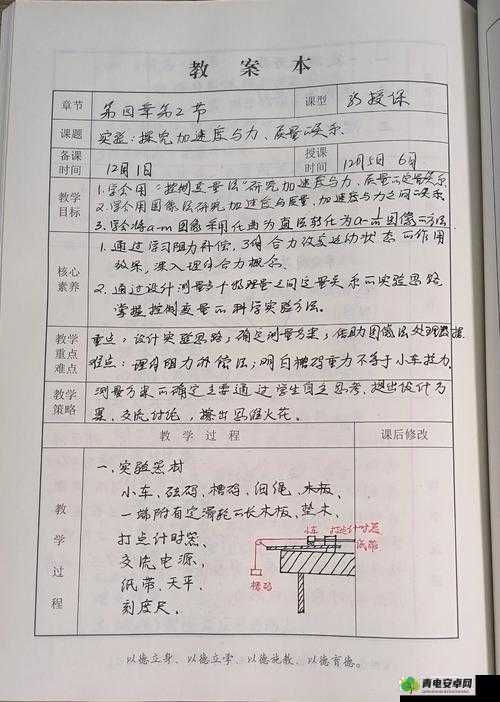 教案本
章节 第四章第2节 课型 新授课
课题 实验:探究加速度与力、质量的关系
备课时间 12月1日 授课时间 12月5日 6日
教学目标 1.学会用"控制变量法"研究加速度与力、质量的定量关系
2.学会用图像法研究加速度与质量、加速度与力之间的关系
3.学会将a-m图像采用化曲为直法转化为a-1/m图像的方法.
核心素养 1.通过学习阻力补偿,了解合力改变运动状态的作用
效果,深入理解合力概念.
2.通过设计测量多个物理量之间定量关系的实验思路
掌握控制变量的科学实验方法.
教学重点难点 重点:设计实验思路,确定测量方案,借助图像法处理数据.
难点:理解阻力补偿法;明白槽码重力不等于小车拉力.
教学策略 测量方案的确定主要通过学生自主思考,提出设计方
案,交流讨论,擦出思维火花.
教学过程 课后修改
教学过程
一.实验器材
小车、砝码、槽码、细绳、木板、
一端附有定滑轮的长木板、垫木、
打点计时器、
交流电源、
纸带、天平、
刻度尺.
小车 打点计时器
纸带
槽码
以德立身、以德立学、以德施教、以德育德。
青电安卓网